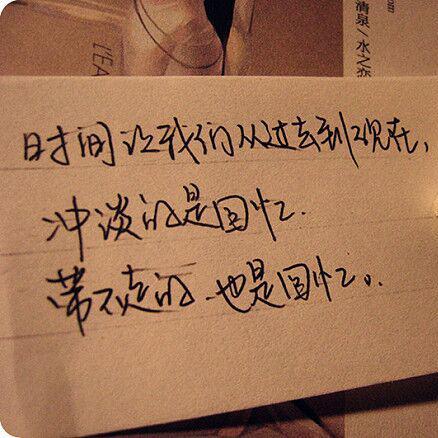 清泉/水ㄍ恋
时间让我们从过去到现在，
冲淡的是回忆.
带不走的.也是回忆。